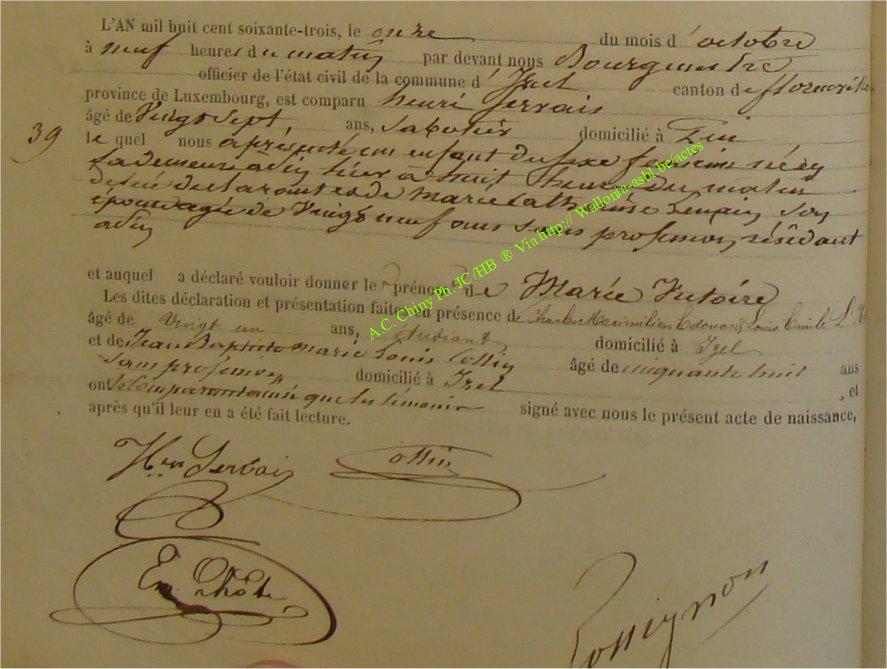 L'AN mil huit cent soixante-trois, le onze du mois d'octobre
à neuf heures du matin par devant nous Bourgmestre
officier de l'état civil de la commune d'Izel canton de florenville
province de Luxembourg, est comparu henri Servais
39
âgé de Vingt Sept ans, Sabotier domicilié à
le quel nous a présenté un enfant du sexe féminin né en
sa demeure hier à huit heures du matin
de lui déclarant et de Marie Cath son
épouse agée de Vingt neuf ans sans profession résidant
et auquel a déclaré vouloir donner le prénom de Marie Victoire
Les dites déclaration et présentation faites en présence de Charles Maximilien Edouard Louis Emile
âgé de vingt un ans, étudiant domicilié à Izel
et de Jean Baptiste marie Louis Cossin âgé de cinquante huit ans
sans profession domicilié à Izel , et
ont le comparant ainsi que les témoins signé avec nous le présent acte de naissance,
après qu'il leur en a été fait lecture.
A.C. Chiny Ph. JC/HB ® Via http:// Wallonia-asbl.be/actes
Hri Servais
Em. Lhôte
Rossignon